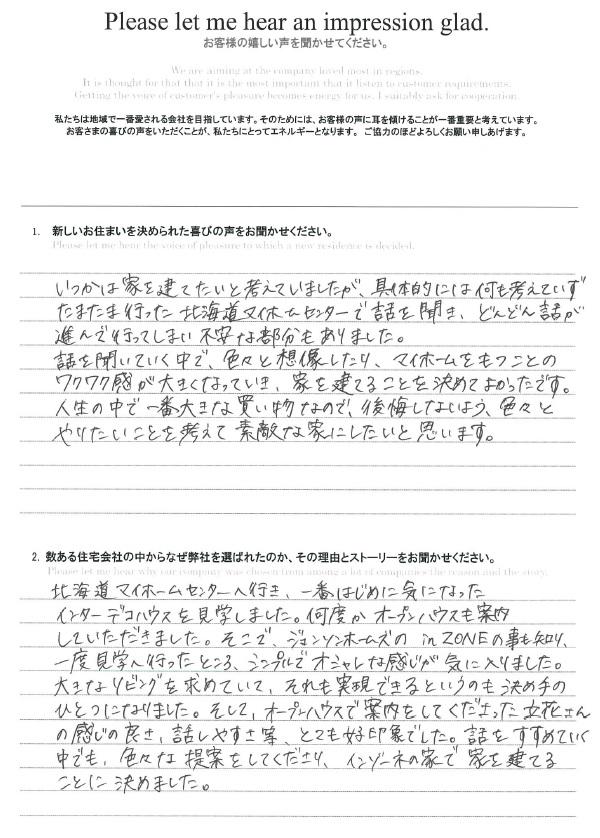 Please let me hear an impression glad.
お客様の嬉しい声を聞かせてください。
We are aiming at the company loved most in regions.
It is thought for that that it is the most important that it listen to customer requirements.
Getting the voice of customer's pleasure becomes energy for us. I suitably ask for cooperation.
私たちは地域で一番愛される会社を目指しています。そのためには、お客様の声に耳を傾けることが一番重要と考えています。
お客さまの喜びの声をいただくことが、私たちにとってエネルギーとなります。 ご協力のほどよろしくお願い申しあげます。
1. 新しいお住まいを決められた喜びの声をお聞かせください。
Please let me hear the voice of pleasure to which a new residence is decided.
いつかは家を建てたいと考えていましたが、具体的には何も考えていず
たまたま行った 北海道マイホームセンターで話を聞き、どんどん話が
進んで行ってしまい 不安な部分もありました。
話を聞いていく中で、色々と想像したり、マイホームをもつことの
ワクワク感が大きくなっていき、家を建てることを決めてよかったです。
人生の中で一番大きな買い物なので、後悔しないよう、色々と
やりたいことを考えて 素敵な家にしたいと思います。
2. 数ある住宅会社の中からなぜ弊社を選ばれたのか、その理由とストーリーをお聞かせください。
Please let me hear why our company was chosen from among a lot of companies the reason and the story.
北海道マイホームセンターへ行き、一番はじめに気になった
インターデコハウスを見学しました。何度か オープンハウスも案内
していただきました。そこで、ジョンソンホームズの inZONEの事も知り、
一度見学へ行ったところ、シンプルでオシャレな感じが気に入りました。
大きなリビングを求めていて、それも実現できるというのも決め手の
ひとつになりました。そして、オープンハウスで案内をしてくださった立花さん
の感じの良さ、話しやすさ等、とても好印象でした。話をすすめていく
中でも、色々な提案をしてくださり、インゾーネの家で家を建てる
ことに決めました。